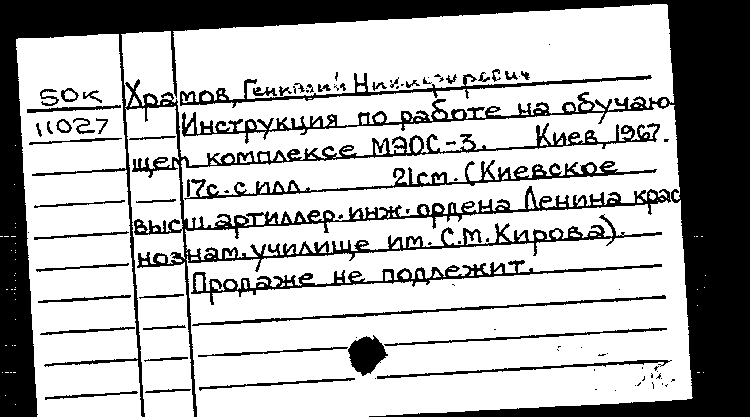 БОК Храмов, Геннадий Никифорович
11027 Инструкция по работе на обучаю-
щем комплексе МЭОС-3. Киев, 1967.
17с. с илл. 21см. (Киевское
высш. артиллер. инж. ордена Ленина крас
нознам. училище им. С.М.Кирова).
Продаже не подлежит.